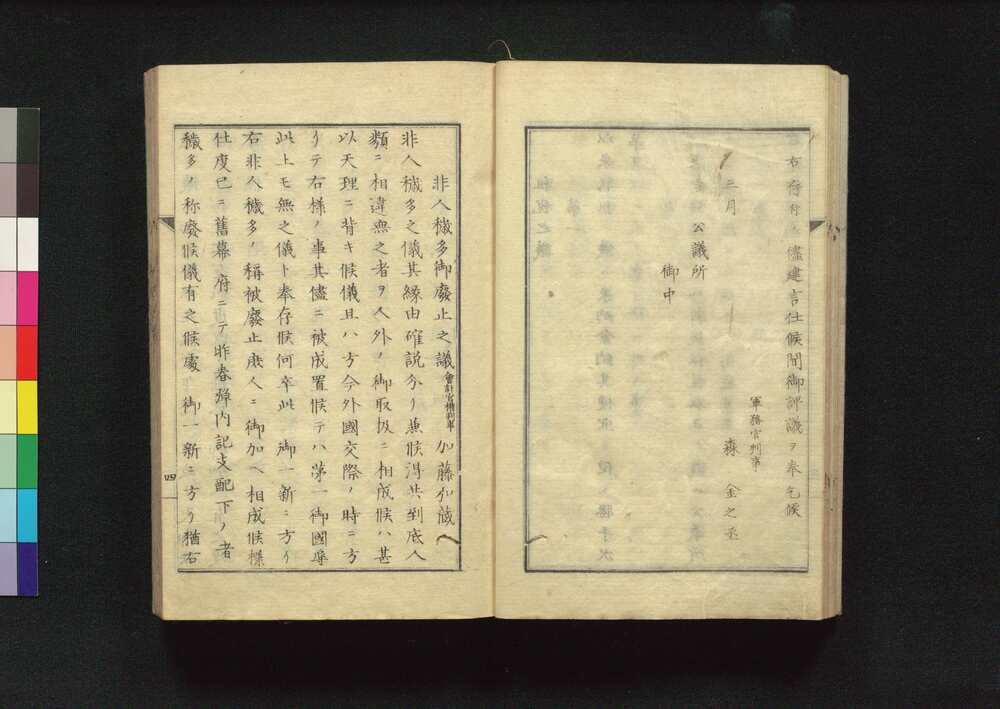 右存付ノ儘建言仕候間御評議ヲ奉乞候
三月
軍務官判事
森 金之丞
公議所
御中
非人穢多御廢止之議 會計官權判事 加藤弘蔵
非人穢多之儀其縁由確説分リ兼候得共到底人
類ニ相違無之者ヲ人外ノ御取扱ニ相成候ハ甚
以天理ニ背キ候儀且ハ方今外國交際ノ時ニ方
リテ右様ノ事其儘ニ被成置候テハ第一御國辱
此上モ無之儀ト奉存候何卒此 御一新ニ方リ
右非人穢多ノ稱被廢止庶人ニ御加ヘ相成候様
仕度已ニ舊幕 府ニテ昨春弾内記支配下ノ者
穢多ノ称廢候儀有之候處 御一新ニ方リ猶右